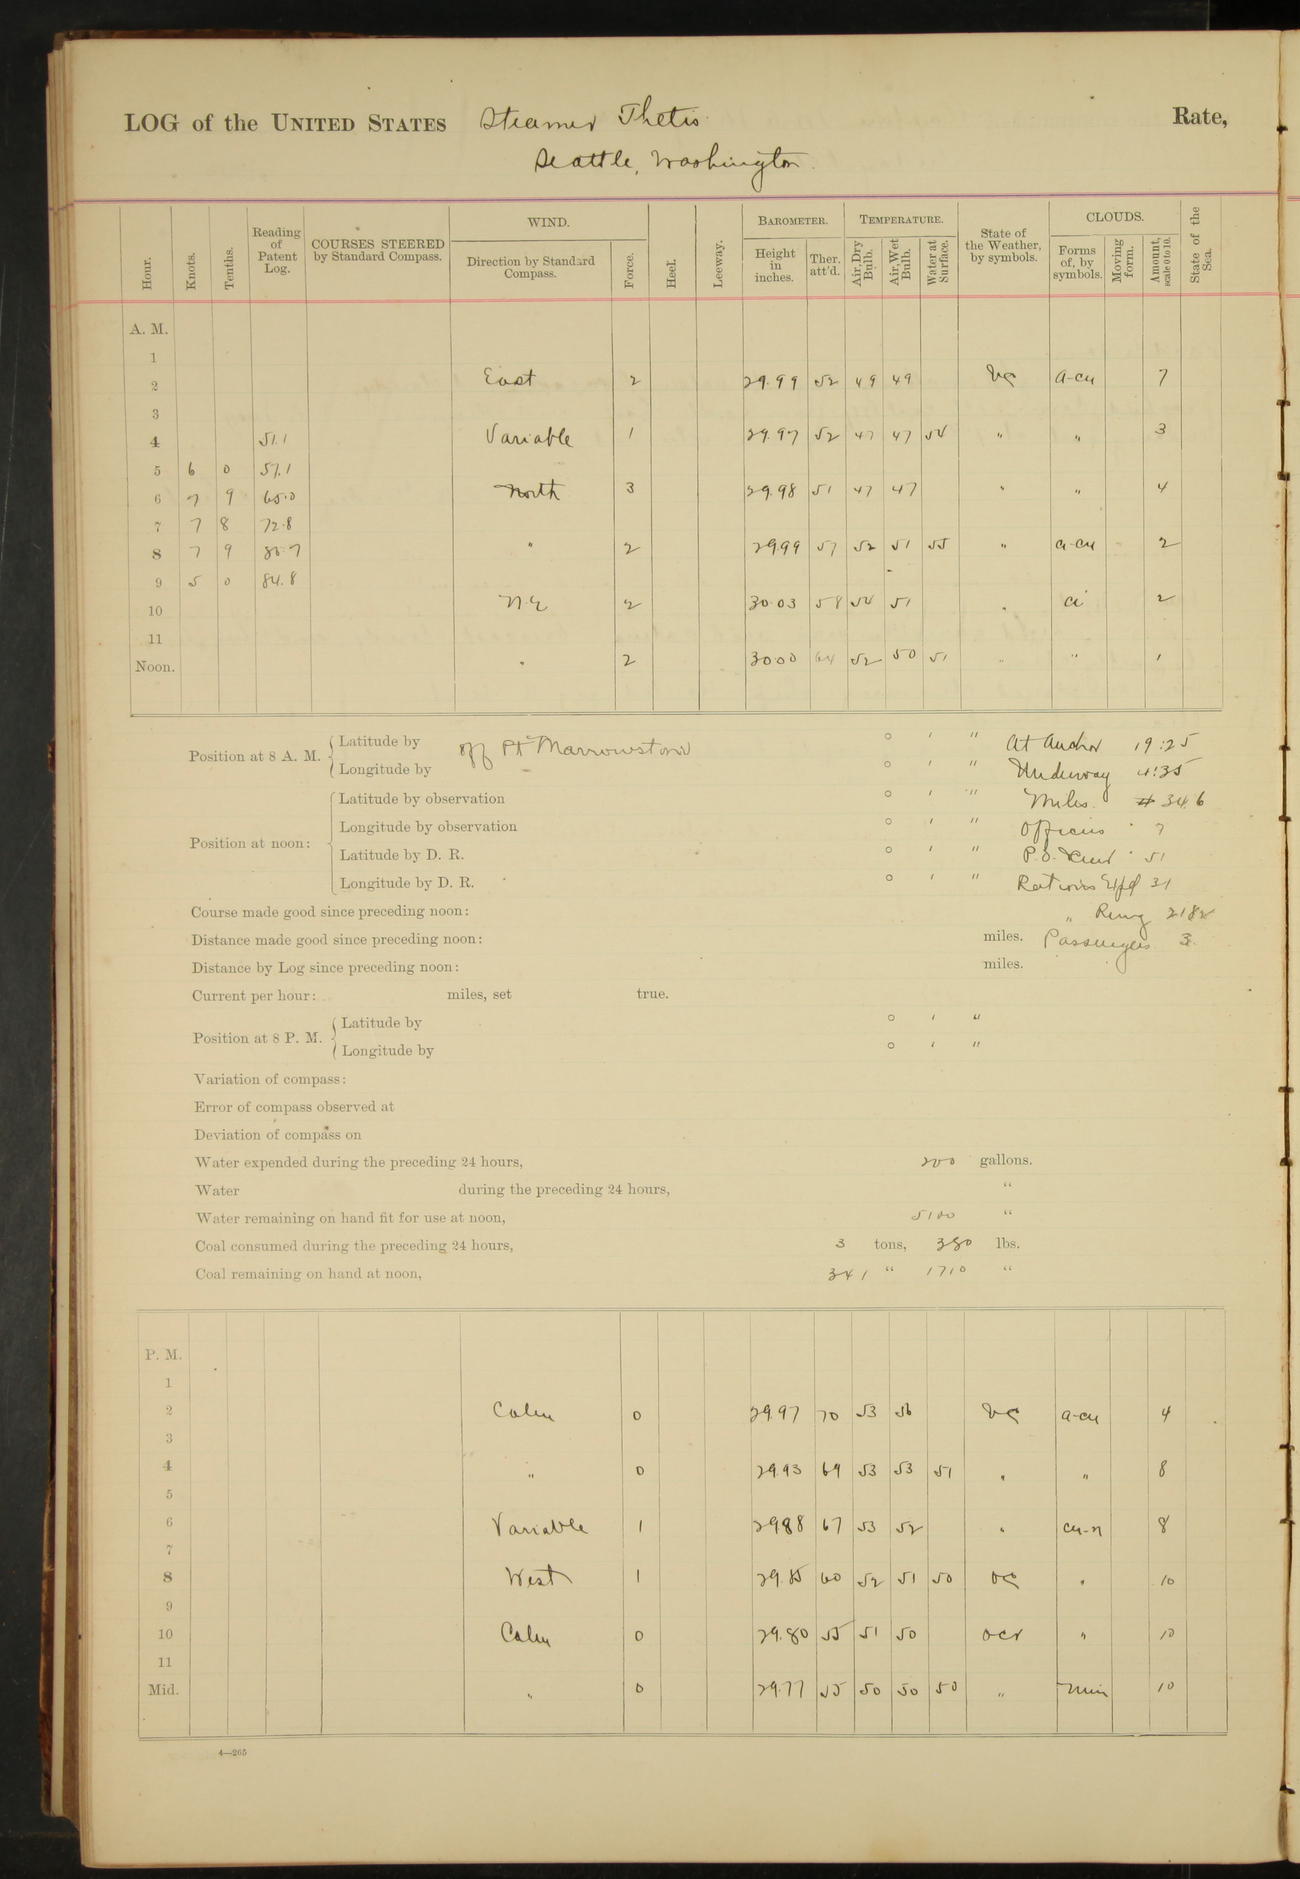 LOG of the UNITED STATES Steamer Thetis Rate,
Seattle, Washington.
Hour. Knots. Tenths. Reading of Patent Log. COURSES STEERED by Standard Compass. WIND. Direction by Standard Compass. Force. Heel. Leeway. BAROMETER. Height in inches. Ther. att'd. TEMPERATURE. Air, Dry Bulb. Air, Wet Bulb. Water at Surface. State of the Weather, by symbols. CLOUDS. Forms of, by symbols. Moving form. Amount, scale 0 to 10. State of the Sea.
A. M.
1
2 East 2 29.99 52 49 49 bc a-cu 7
3
4 51.1 Variable 1 29.97 52 47 47 54 " " 3
5 6 0 57.1
6 7 9 65.0 North 3 29.98 51 47 47 " " 4
7 7 8 72.8
8 7 9 80.7 " 2 29.99 57 52 51 55 " a-cu 2
9 5 0 84.8
10 NE 2 30.03 58 54 51 " ci 2
11
Noon. " 2 30.00 64 52 50 51 " " 1
Position at 8 A. M. Latitude by off Pt Marrowstone ° ′ ″ At Anchor 19:25
Longitude by ° ′ ″ Underway 4:35
Position at noon: Latitude by observation ° ′ ″ Miles 34.6
Longitude by observation ° ′ ″ Officers 7
Latitude by D. R. ° ′ ″ P.O. 51
Longitude by D. R. ° ′ ″ Rations 31
Course made good since preceding noon: " 2182
Distance made good since preceding noon: miles. Passengers 3
Distance by Log since preceding noon: miles.
Current per hour: miles, set true.
Position at 8 P. M. Latitude by ° ′ ″
Longitude by ° ′ ″
Variation of compass:
Error of compass observed at
Deviation of compass on
Water expended during the preceding 24 hours, 200 gallons.
Water during the preceding 24 hours, "
Water remaining on hand fit for use at noon, 5100 "
Coal consumed during the preceding 24 hours, 3 tons, 380 lbs.
Coal remaining on hand at noon, 341 " 1710 "
P. M.
1
2 Calm 0 29.97 70 53 56 bc a-cu 4
3
4 " 0 29.93 69 53 53 51 " " 8
5
6 Variable 1 29.88 67 53 52 " cu-n 8
7
8 West 1 29.85 60 52 51 50 oc " 10
9
10 Calm 0 29.80 55 51 50 ocr " 10
11
Mid. " 0 29.77 55 50 50 50 " nim 10
4—265